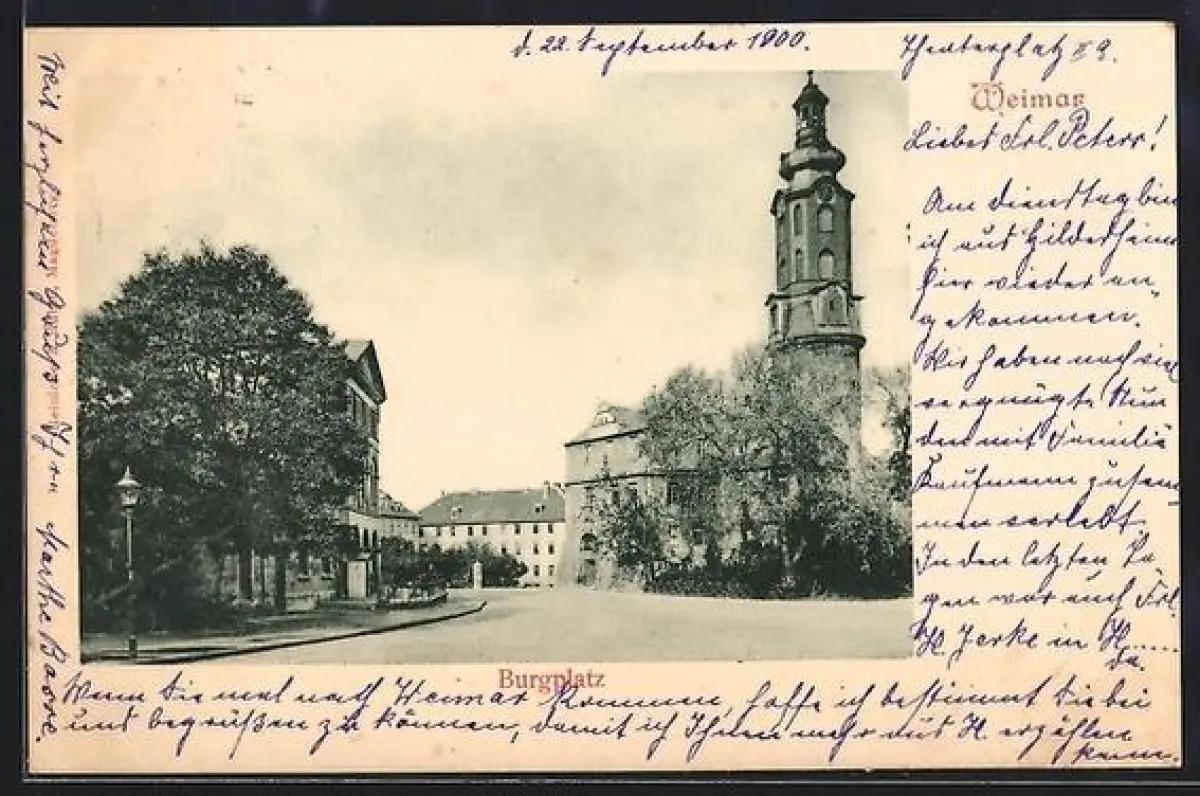 d. 22. September 1900.
Theaterplatz
Weimar
Liebes Frl. Peters!
Am Dienstag bin
ich aus Hildesheim
hier wieder an-
gekommen.
Wir haben noch viel
vergnügte Stun
den mit Familie
Kaufmann zusam
men verlebt.
In den letzten Ta-
gen war auch Frl.
in H......
da.
Burgplatz
Wenn Sie mal nach Weimar kommen, hoffe ich bestimmt Sie bei
uns begrüßen zu können, damit ich Ihnen mehr aus H. erzählen
kann.
Mit herzlichen Gruss Ihre Marthe Baare.